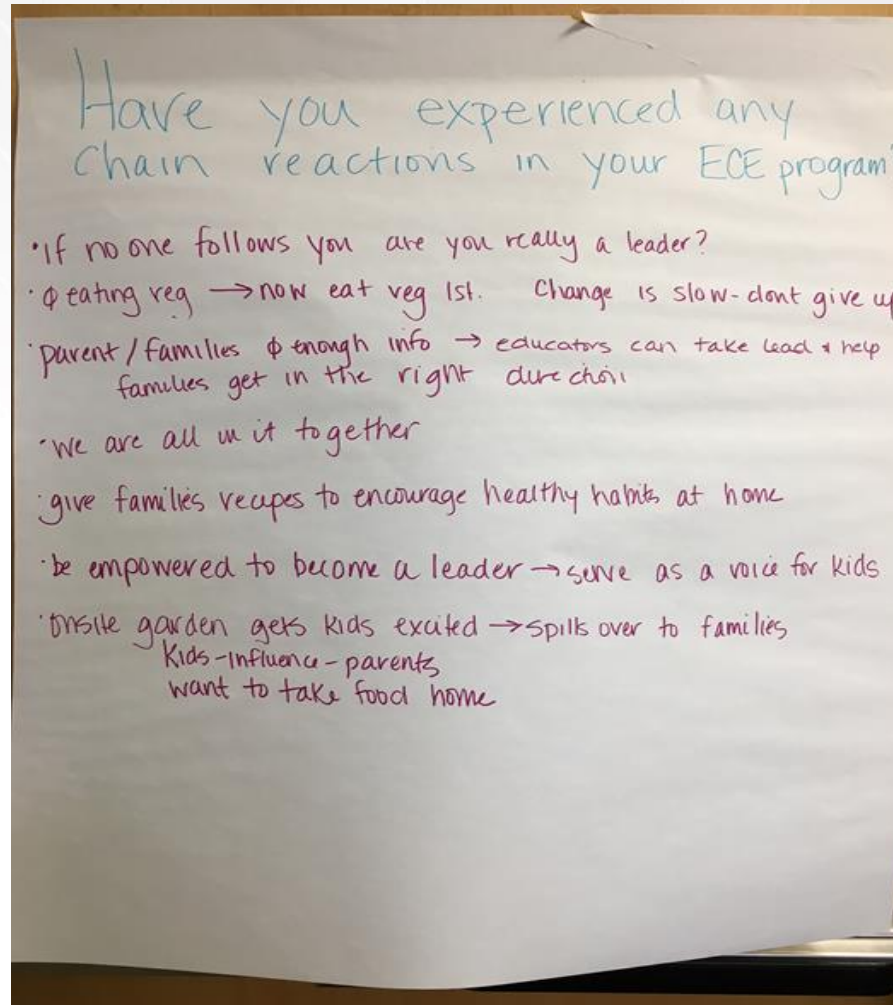 Have you experienced any
Chain reactions in your ECE program?
• If no one follows you are you really a leader?
• ϕ eating veg → now eat veg 1st. Change is slow - dont give up
• parent / families ϕ enough info → educators can take lead & help
families get in the right direction
• we are all in it together
• give families recipes to encourage healthy habits at home
• be empowered to become a leader → serve as a voice for kids
• onsite garden gets kids excited → spills over to families
Kids - influence - parents
want to take food home